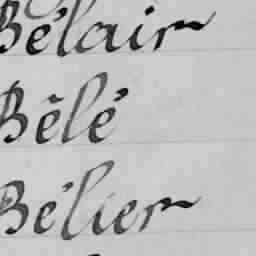 Bélair
Bêlé
Bélier